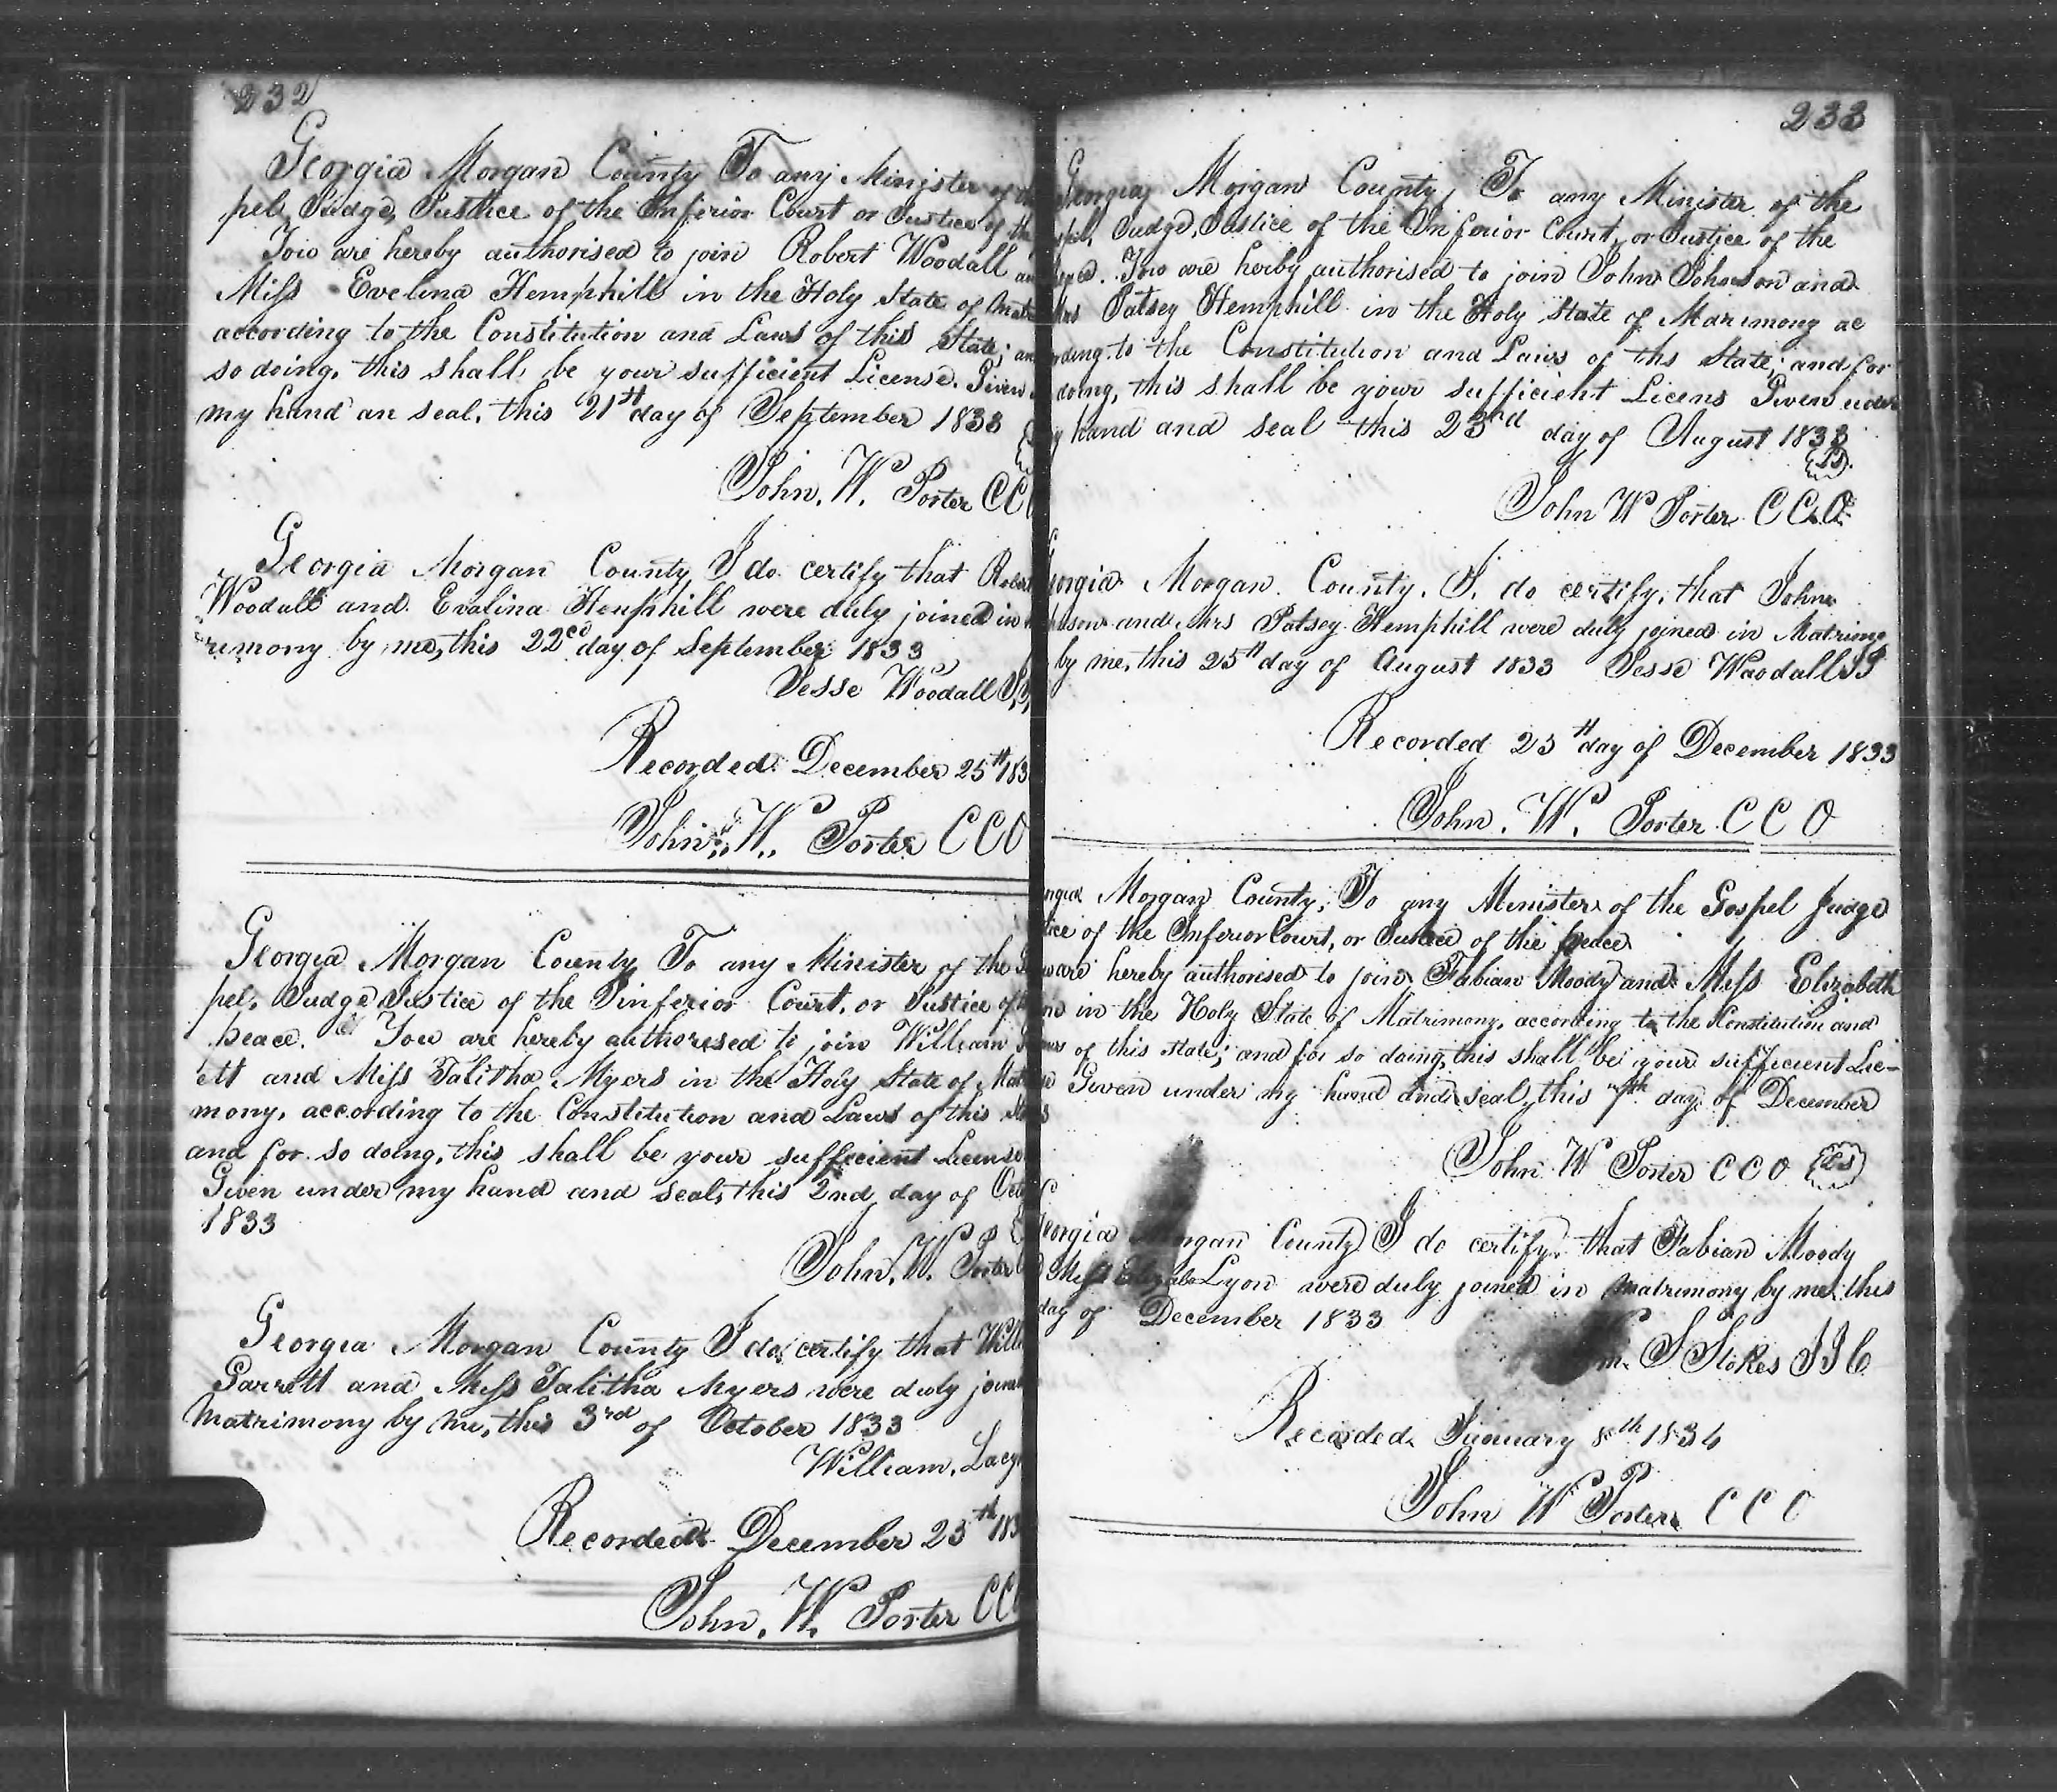 232
Georgia Morgan County To any Minister of the
pel, Judge, Justice of the Inferior Court or Justice of the
You are hereby authorised to join Robert Woodall an
Miss Evelina Hemphill in the Holy State of Mat
according to the Constitution and Laws of this State; an
so doing, this shall be your sufficient License. Given
my hand an seal, this 21st day of September 1833
John. W. Porter CC
Georgia Morgan County I do certify that Robert
Woodall and Evalina Hemphill were duly joined in
rimony by me, this 22cd day of September 1833
Jesse Woodall J.P.
Recorded December 25th 183
John. W. Porter CCO
Georgia Morgan County To any Minister of the
pel, Judge, Justice of the Jinferior Court, or Justice of
peace. You are hereby authoresed to join William
ett and Miss Talitha Myers in the Holy State of Mat
mony, according to the Constitution and Laws of this
and for so doing, this shall be your suffecient License
Given under my hand and seal, this 2nd day of Octo
1833
John. W. Porter
Georgia Morgan County I do certify that Will
Garrett and Miss Talitha Myers were duly joined
Matrimony by me, this 3rd of October 1833
William, Lacy
Recorded December 25th 183
John. W. Porter CC
233
Georgia, Morgan County, To any Minister of the
spel, Judge, Justice of the Inferior Court, or Justice of the
You are herby authorised to join John Johnson and
Mrs Patsey Hemphill in the Holy State of Marimony ac
ording to the Constitution and Laws of ths State; and for
doing, this shall be your sufficient Licens Given under
y hand and seal this 23rd day of August 1833
LS
John W Porter C C O
eorgia Morgan County. I. do certify, that John
hnson and Mrs Patsey Hemphill were duly joined in Matrimo
by me, this 25th day of August 1833 Jesse Woodall JP
Recorded 25th day of December 1833
John. W. Porter C C O
orgia Morgan County, To any Minister of the Gospel Judge
tice of the Inferior Court, or Justice of the peace
are hereby authorised to join Fabian Moody and Miss Elizabeth
on in the Holy State of Matrimony, according to the Constitution and
aws of this State; and for so doing, this shall be your suffecient Lic-
Given under my hand and seal, this 7th day of December
John W Porter C C O LS
eorgia Morgan County I do certify that Fabian Moody
Miss Lyon were duly joined in matrimony by me this
day of December 1833
S Stokes J I C
Recorded January 8th 1834
John W Porter C C O